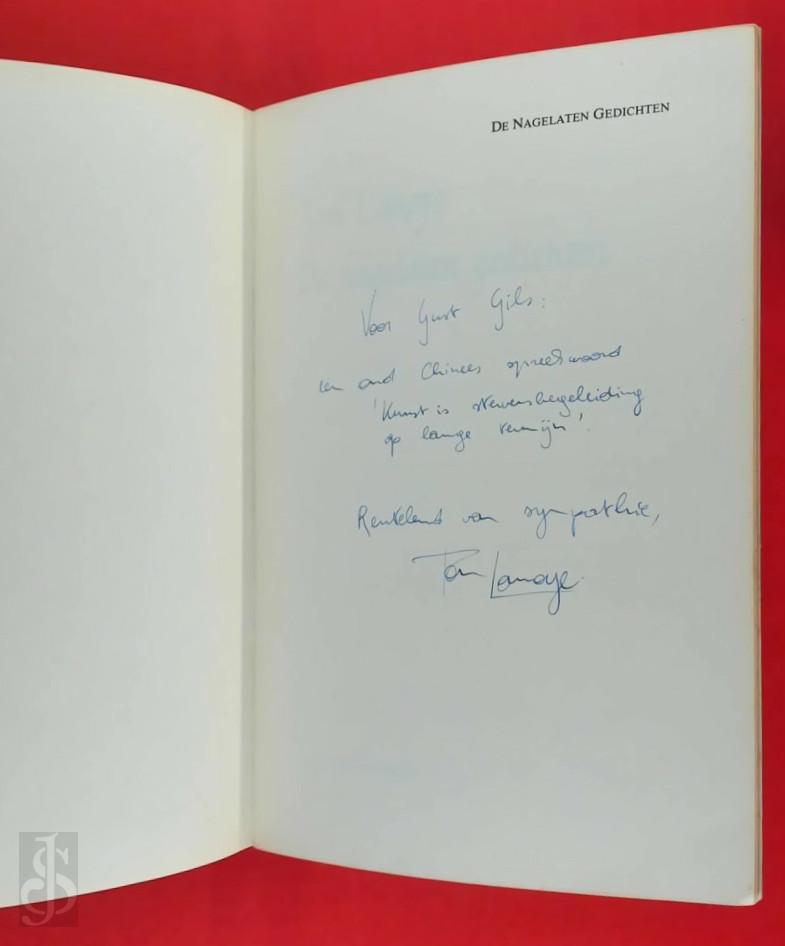 DE NAGELATEN GEDICHTEN
Voor Gust Gils:
een oud Chinees spreekwoord
'Kunst is stervensbegeleiding
op lange termijn'.
van sympathie,
Tom Lanoye.